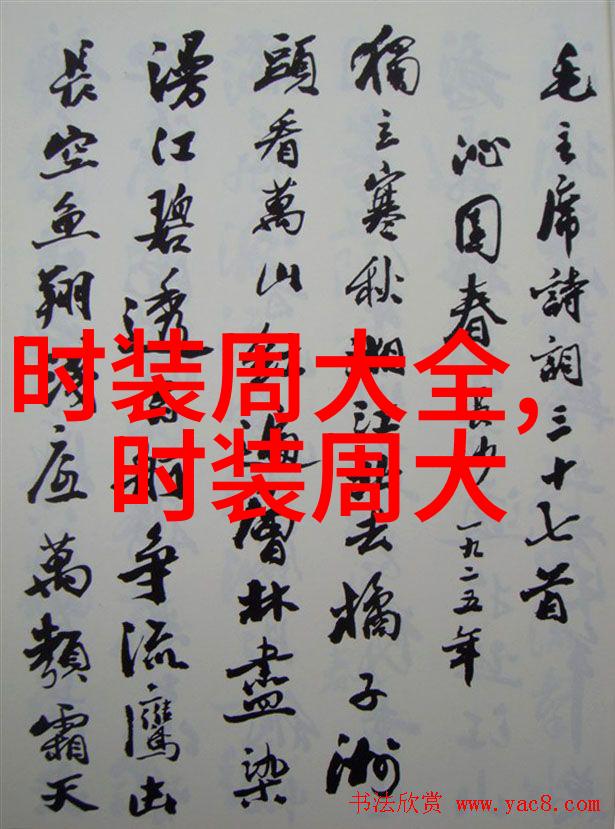 毛主席詩詞三十七首
沁园春 長沙 一九二五年
獨立寒秋湘江北去橘子洲
頭看萬山紅遍層林盡染
漫江碧透百舸争流鷹击
長空魚翔淺底萬類霜天
时装周大全,
时装周大
书法欣赏 www.yac8.com